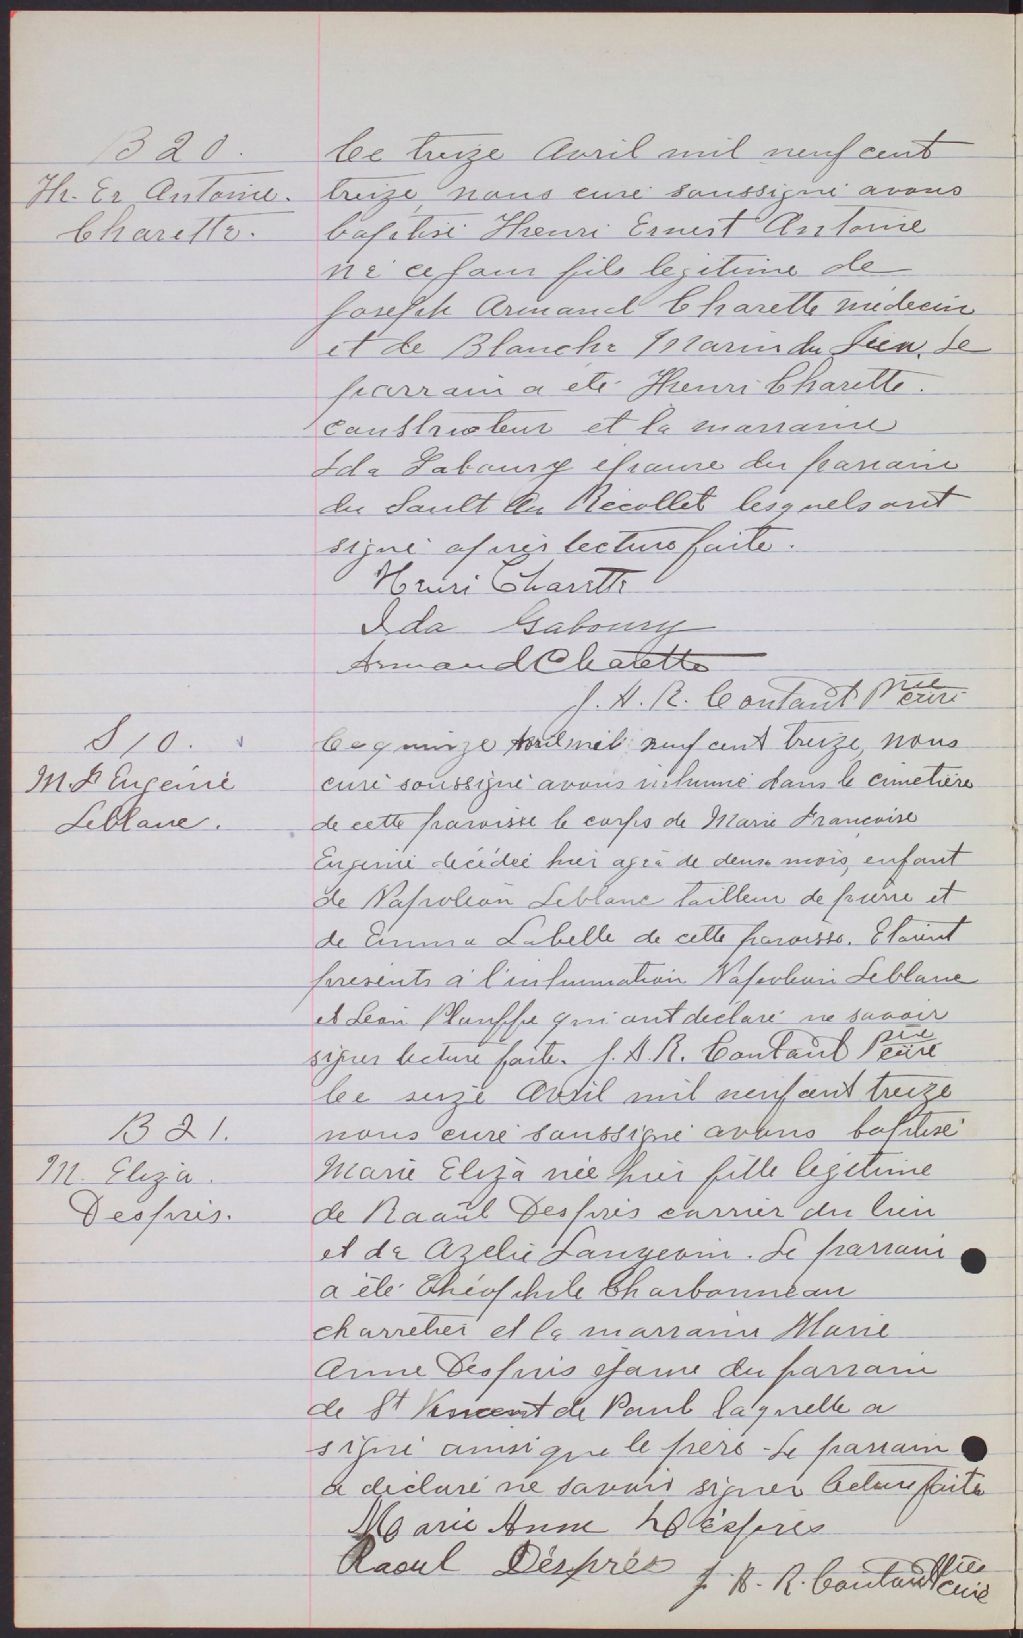 B 20.
Hr. Er Antoine.
Charette.
Ce treize Avril mil neuf cent
treize, nous curé soussigné avons
baptisé Henri Ernest Antoine
né ce jour fils legitime de
Joseph Armand Charette médecin
et de Blanche Marin du lieu. Le
parrain a été Henri Charette.
constructeur et la marraine
Ida Gaboury épouse du parrain
du Sault Au Récollet lesquels ont
signé après lecture faite.
Henri Charette
Ida Gaboury
Armand Charette
J. A. R. Contant Ptre curé
S 10.
M. F Eugénie
Leblanc.
Ce quinze Avril mil neuf cent treize, nous
curé soussigné avons inhumé dans le cimetière
de cette paroisse le corps de Marie Françoise
Eugénie décédée hier agée de deux mois, enfant
de Napoléon Leblanc tailleur de pierre et
de Emma Labelle de cette paroisse. Etaient
présents à l'inhumation Napoléon Leblanc
et Léon Plouffe qui ont déclaré ne savoir
signer lecture faite. J. A. R. Contant Ptre curé
B 21.
M. Eliza.
Despris.
Ce seize Avril mil neuf cent treize
nous curé soussigné avons baptisé
Marie Eliza née hier fille légitime
de Raoul Despris carrier du lieu
et de Azélie Langevin. Le parrain
a été Théophile Charbonneau
charretier et la marraine Marie
Anne Despris épouse du parrain
de St Vincent de Paul laquelle a
signé ainsi que le père - Le parrain
a déclaré ne savoir signer lecture faite
Marie Anne Després
Raoul Després
J. A. R. Contant Ptre curé